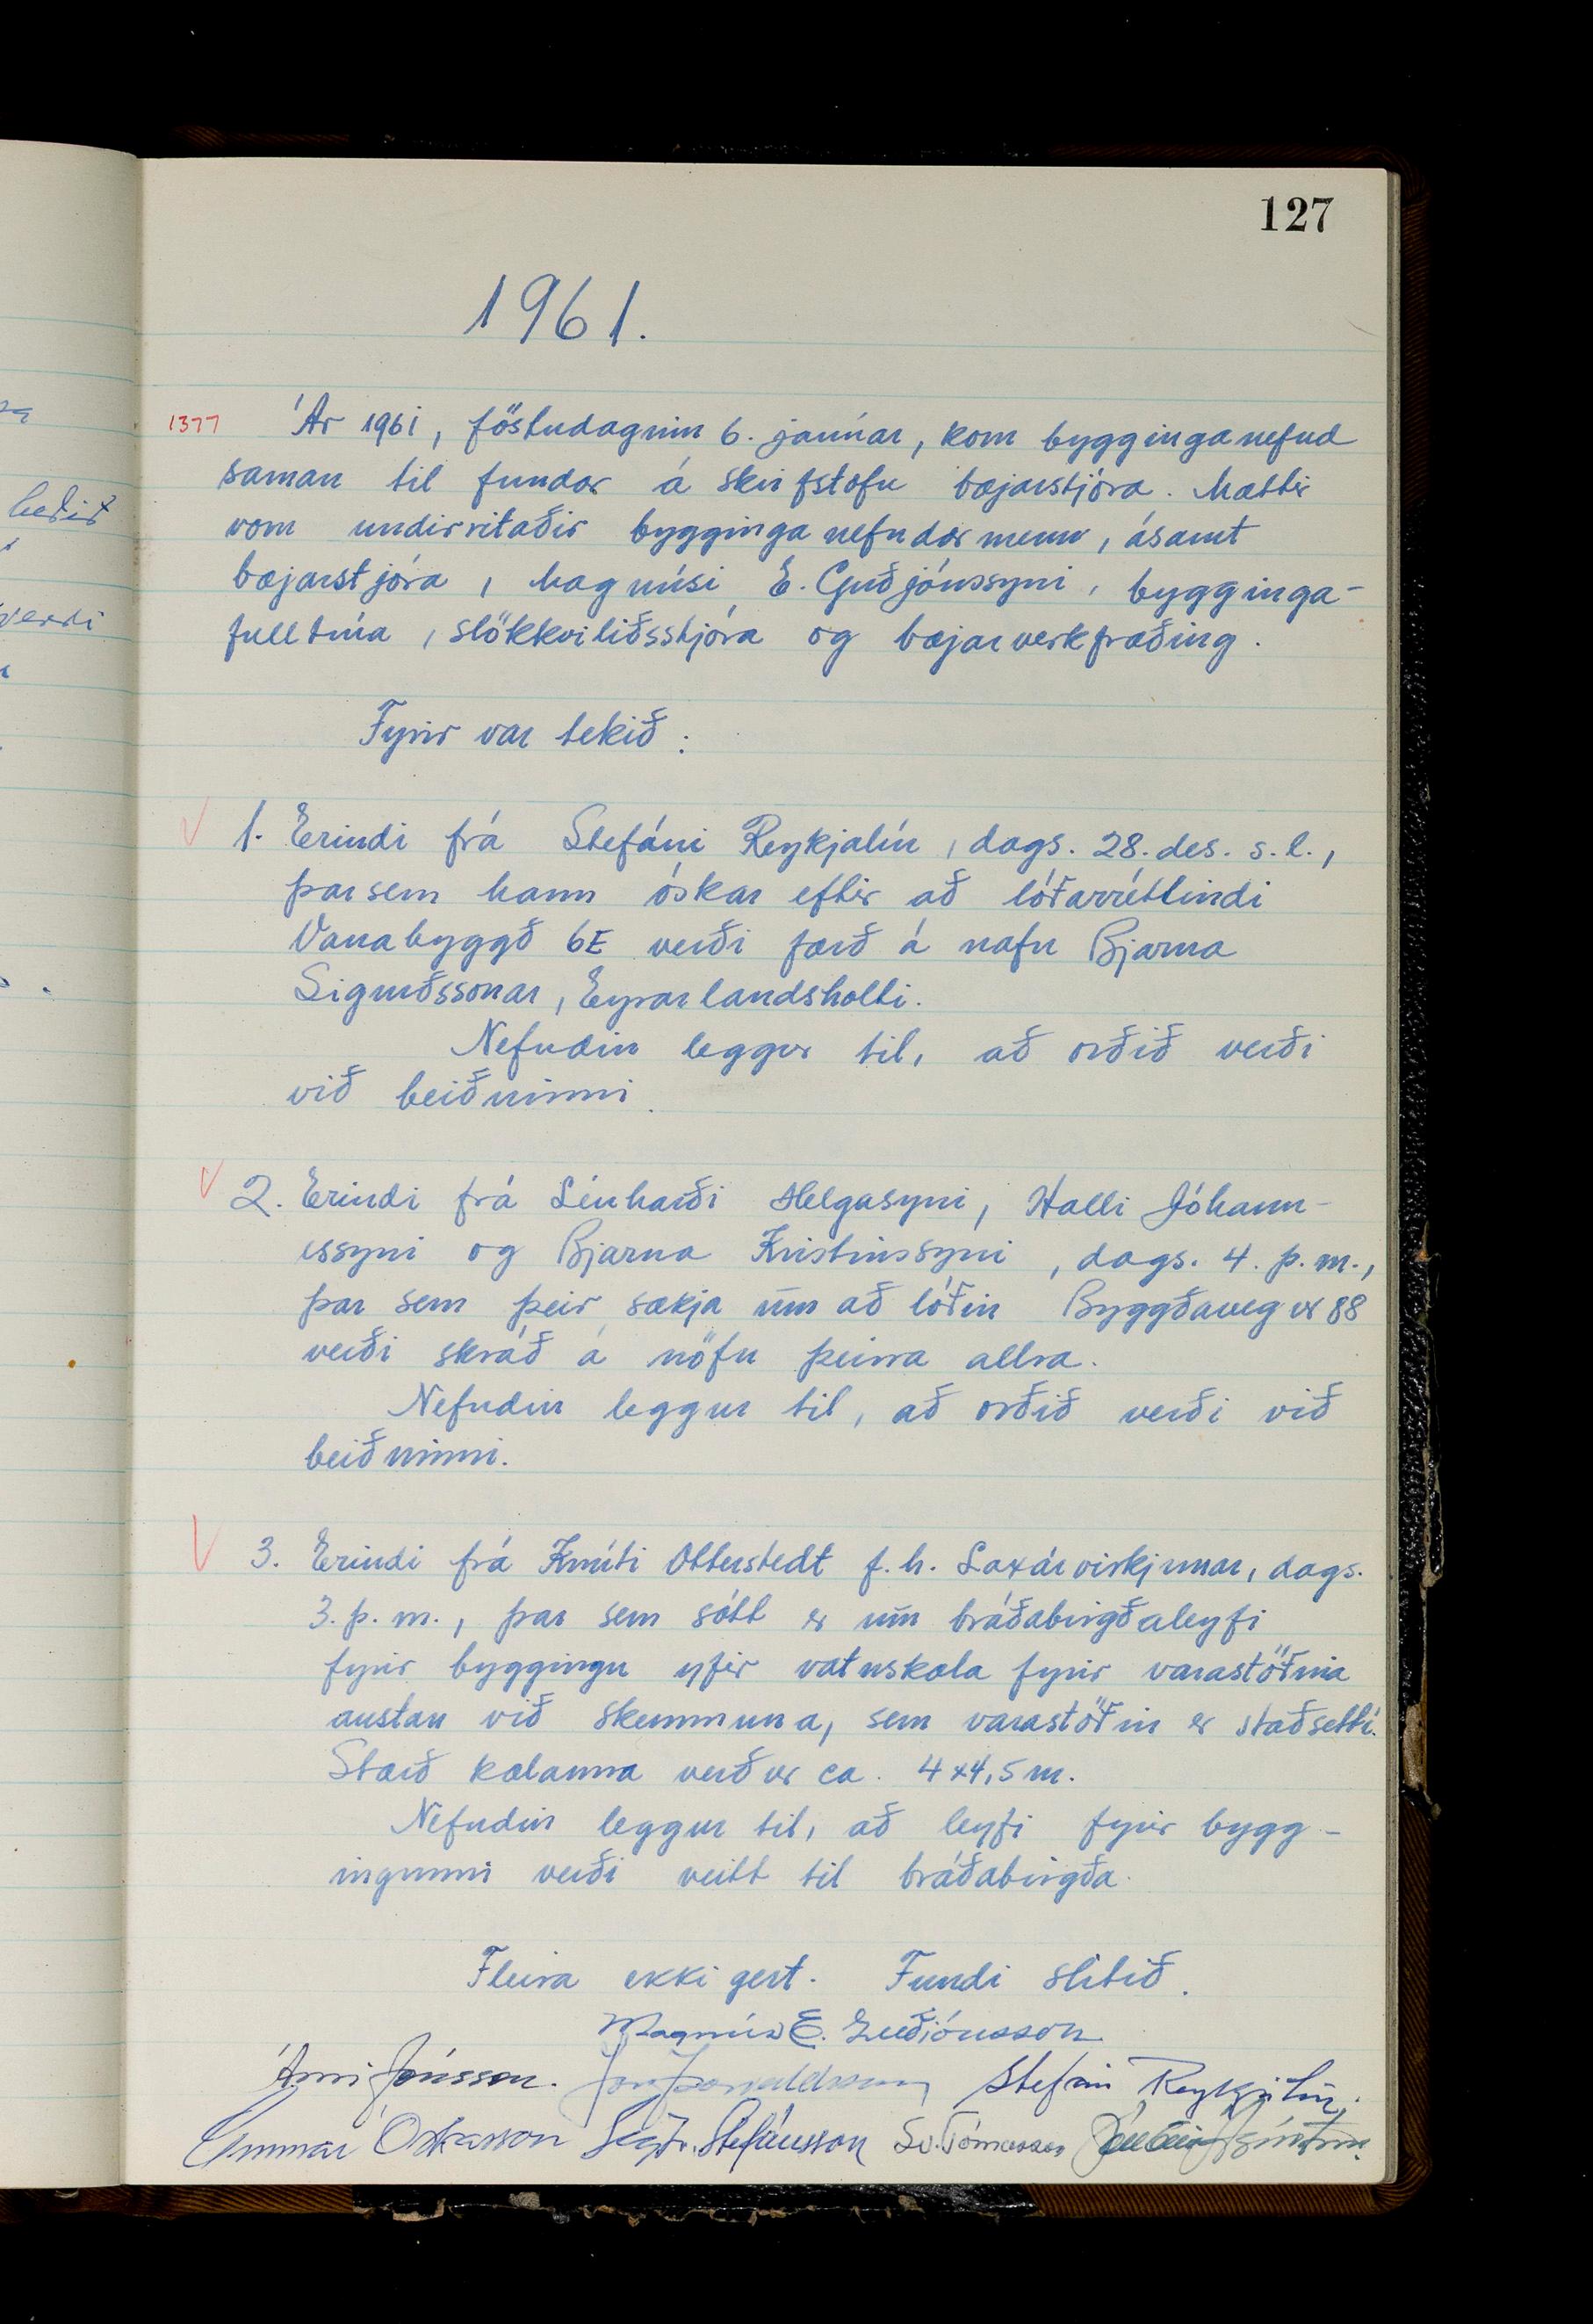 127
1961.
1377 Ár 1961, föstudaginn 6. janúar, kom bygginganefnd
saman til fundar á skrifstofu bæjarstjóra. Mættir
voru undirritaðir bygginganefndarmenn, ásamt
bæjarstjóra, Magnúsi E. Guðjónssyni, bygginga-
fulltrúa, slökkviliðsstjóra og bæjarverkfræðing.
Fyrir var tekið:
1. Erindi frá Stefáni Reykjalín, dags. 28. des. s.l.,
þar sem hann óskar eftir að lóðarréttindi
Vanabyggð 6E verði færð á nafn Bjarna
Sigurðssonar, Eyrarlandsholti.
Nefndin leggur til, að orðið verði
við beiðninni.
2. Erindi frá Lénharði Helgasyni, Halli Jóhann-
essyni og Bjarna Kristinssyni, dags. 4. þ.m.,
þar sem þeir sækja um að lóðin Byggðavegur 88
verði skráð á nöfn þeirra allra.
Nefndin leggur til, að orðið verði við
beiðninni.
3. Erindi frá Knúti Otterstedt f.h. Laxárvirkjunar, dags.
3. þ.m., þar sem sótt er um bráðabirgðaleyfi
fyrir byggingu yfir vatnskæla fyrir varastöðina
austan við skemmuna, sem varastöðin er staðsett í.
Stærð kælanna verður ca. 4x4,5 m.
Nefndin leggur til, að leyfi fyrir bygg-
ingunni verði veitt til bráðabirgða.
Fleira ekki gert. Fundi slitið.
Magnús E. Guðjónsson
Árni Jónsson. Jón Þorvaldsson Stefán Reykjalín.
Gunnar Óskarsson Sigtr. Stefánsson Sv. Tómasson
heðið
verði